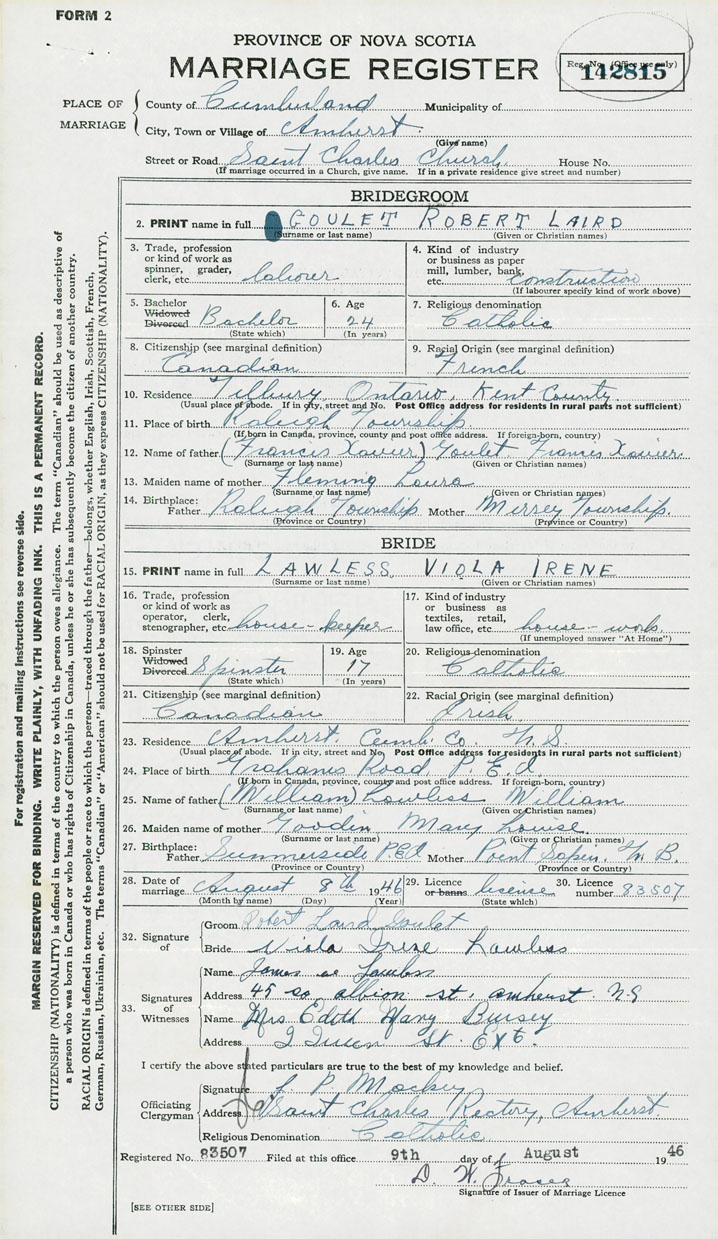 FORM 2
PROVINCE OF NOVA SCOTIA
MARRIAGE REGISTER
Reg. No. (Office use only)
142815
PLACE OF MARRIAGE
County of Cumberland Municipality of
City, Town or Village of Amherst.
(Give name)
Street or Road Saint Charles Church. House No.
(If marriage occurred in a Church, give name. If in a private residence give street and number)
BRIDEGROOM
2. PRINT name in full GOULET ROBERT LAIRD
(Surname or last name) (Given or Christian names)
3. Trade, profession or kind of work as spinner, grader, clerk, etc. labourer
4. Kind of industry or business as paper mill, lumber, bank, etc. construction
(If labourer specify kind of work above)
5. Bachelor Widowed Divorced Bachelor
(State which)
6. Age 24
(In years)
7. Religious denomination Catholic
8. Citizenship (see marginal definition) Canadian
9. Racial Origin (see marginal definition) French
10. Residence Tilbury, Ontario, Kent County.
(Usual place of abode. If in city, street and No. Post Office address for residents in rural parts not sufficient)
11. Place of birth Raleigh Township
(If born in Canada, province, county and post office address. If foreign-born, country)
12. Name of father (Francis Xavier) Goulet Francis Xavier
(Surname or last name) (Given or Christian names)
13. Maiden name of mother Fleming Laura
(Surname or last name) (Given or Christian names)
14. Birthplace: Father Raleigh Township Mother Township.
(Province or Country) (Province or Country)
BRIDE
15. PRINT name in full LAWLESS VIOLA IRENE
(Surname or last name) (Given or Christian names)
16. Trade, profession or kind of work as operator, clerk, stenographer, etc. house-keeper
17. Kind of industry or business as textiles, retail, law office, etc. house-work.
(If unemployed answer "At Home")
18. Spinster Widowed Divorced Spinster
(State which)
19. Age 17
(In years)
20. Religious denomination Catholic
21. Citizenship (see marginal definition) Canadian
22. Racial Origin (see marginal definition) Irish.
23. Residence Amherst. Cumb. Co. N.S.
(Usual place of abode. If in city, street and No. Post Office address for residents in rural parts not sufficient)
24. Place of birth Grahams Road P.E.I.
(If born in Canada, province, county and post office address. If foreign-born, country)
25. Name of father (William) Lawless William
(Surname or last name) (Given or Christian names)
26. Maiden name of mother Mary Louise.
(Surname or last name) (Given or Christian names)
27. Birthplace: Father Summerside P.E.I. Mother Point N.B.
(Province or Country) (Province or Country)
28. Date of marriage August 8th 1946
(Month by name) (Day) (Year)
29. Licence or banns license
(State which)
30. Licence number 83507
32. Signature of
Groom Robert Laird Goulet
Bride Viola Irene Lawless
33. Signatures of Witnesses
Name James
Address 45 so, albion st, amherst. N.S
Name Mrs Edith Mary Bursey
Address 2 St. Ext.
I certify the above stated particulars are true to the best of my knowledge and belief.
Officiating Clergyman
Signature J. P. Mackey
Address Saint Charles Rectory, Amherst.
Religious Denomination Catholic
Registered No. 83507 Filed at this office 9th day of August 1946
D. W. Fraser
Signature of Issuer of Marriage Licence
[SEE OTHER SIDE]
For registration and mailing instructions see reverse side.
MARGIN RESERVED FOR BINDING. WRITE PLAINLY, WITH UNFADING INK. THIS IS A PERMANENT RECORD.
CITIZENSHIP (NATIONALITY) is defined in terms of the country to which the person owes allegiance. The term "Canadian" should be used as descriptive of
a person who was born in Canada or who has rights of Citizenship in Canada, unless he or she has subsequently become the citizen of another country.
RACIAL ORIGIN is defined in terms of the people or race to which the person—traced through the father—belongs, whether English, Irish, Scottish, French,
German, Russian, Ukrainian, etc. The terms "Canadian" or "American" should not be used for RACIAL ORIGIN, as they express CITIZENSHIP (NATIONALITY).